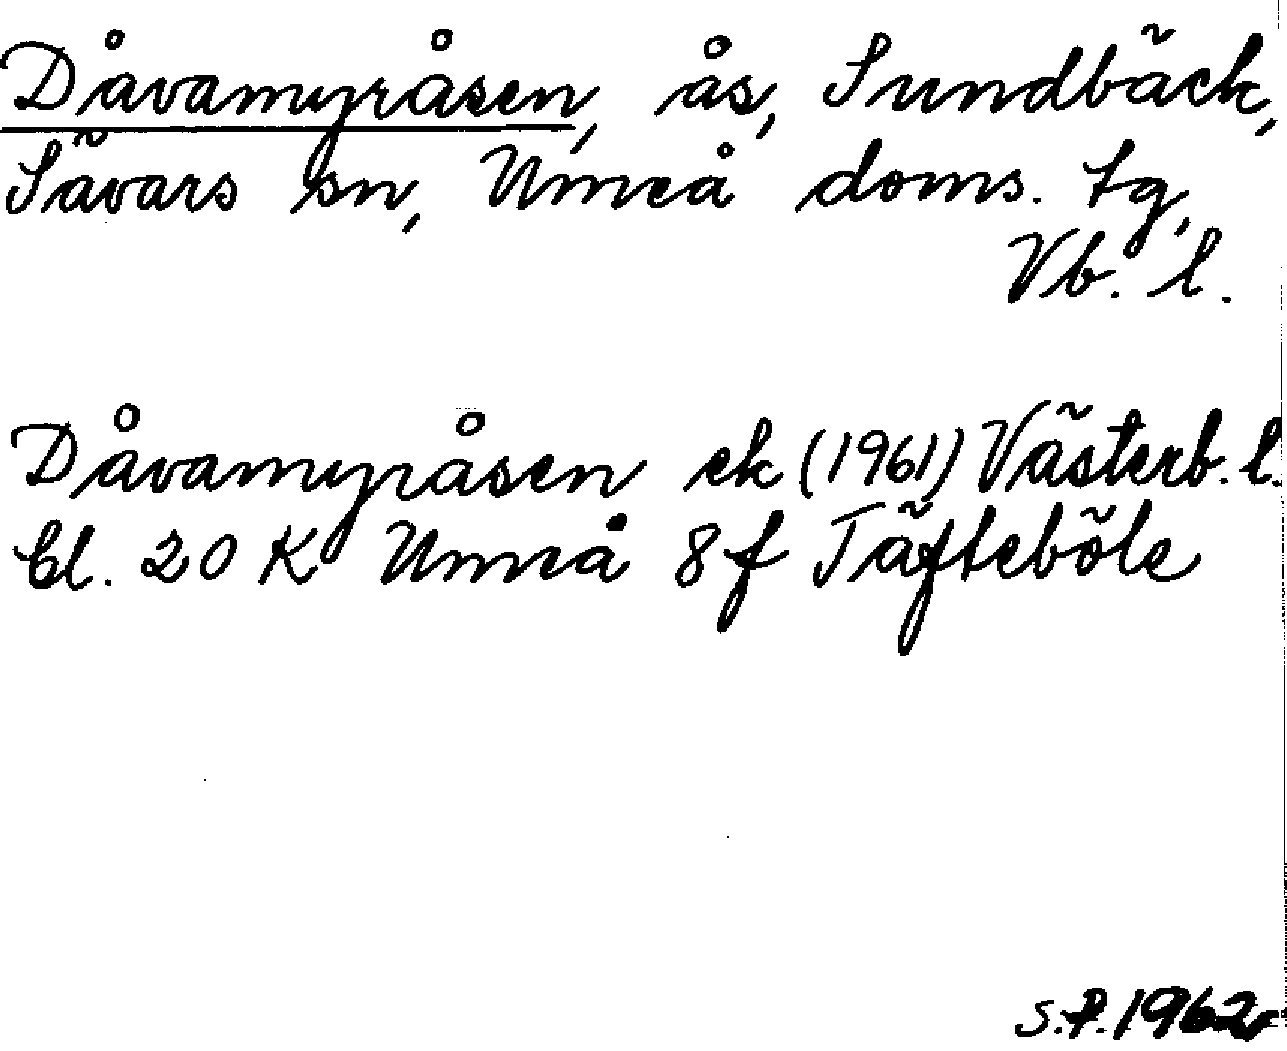 Dåvamyråsen, ås, Sundbäck,
Sävars sn, Umeå doms. tg,
Vb. l.
Dåvamyråsen ek (1961) Västerb. l.
bl. 20 K Umeå 8 f Täfteböle
S.P. 1962